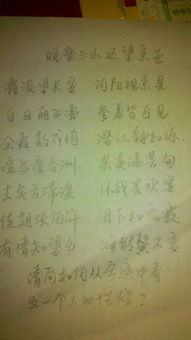 晚登三山还望京邑
灞涘望长安 河阳视京县
白日丽飞甍 参差皆可见
余霞散成绮 澄江静如练
喧鸟覆春洲 杂英满芳甸
去矣方滞淫 怀哉罢欢宴
佳期怅何许 泪下如流霰
有情知望乡 谁能鬒不变
请问如何从字迹中看
出一个人的性格？